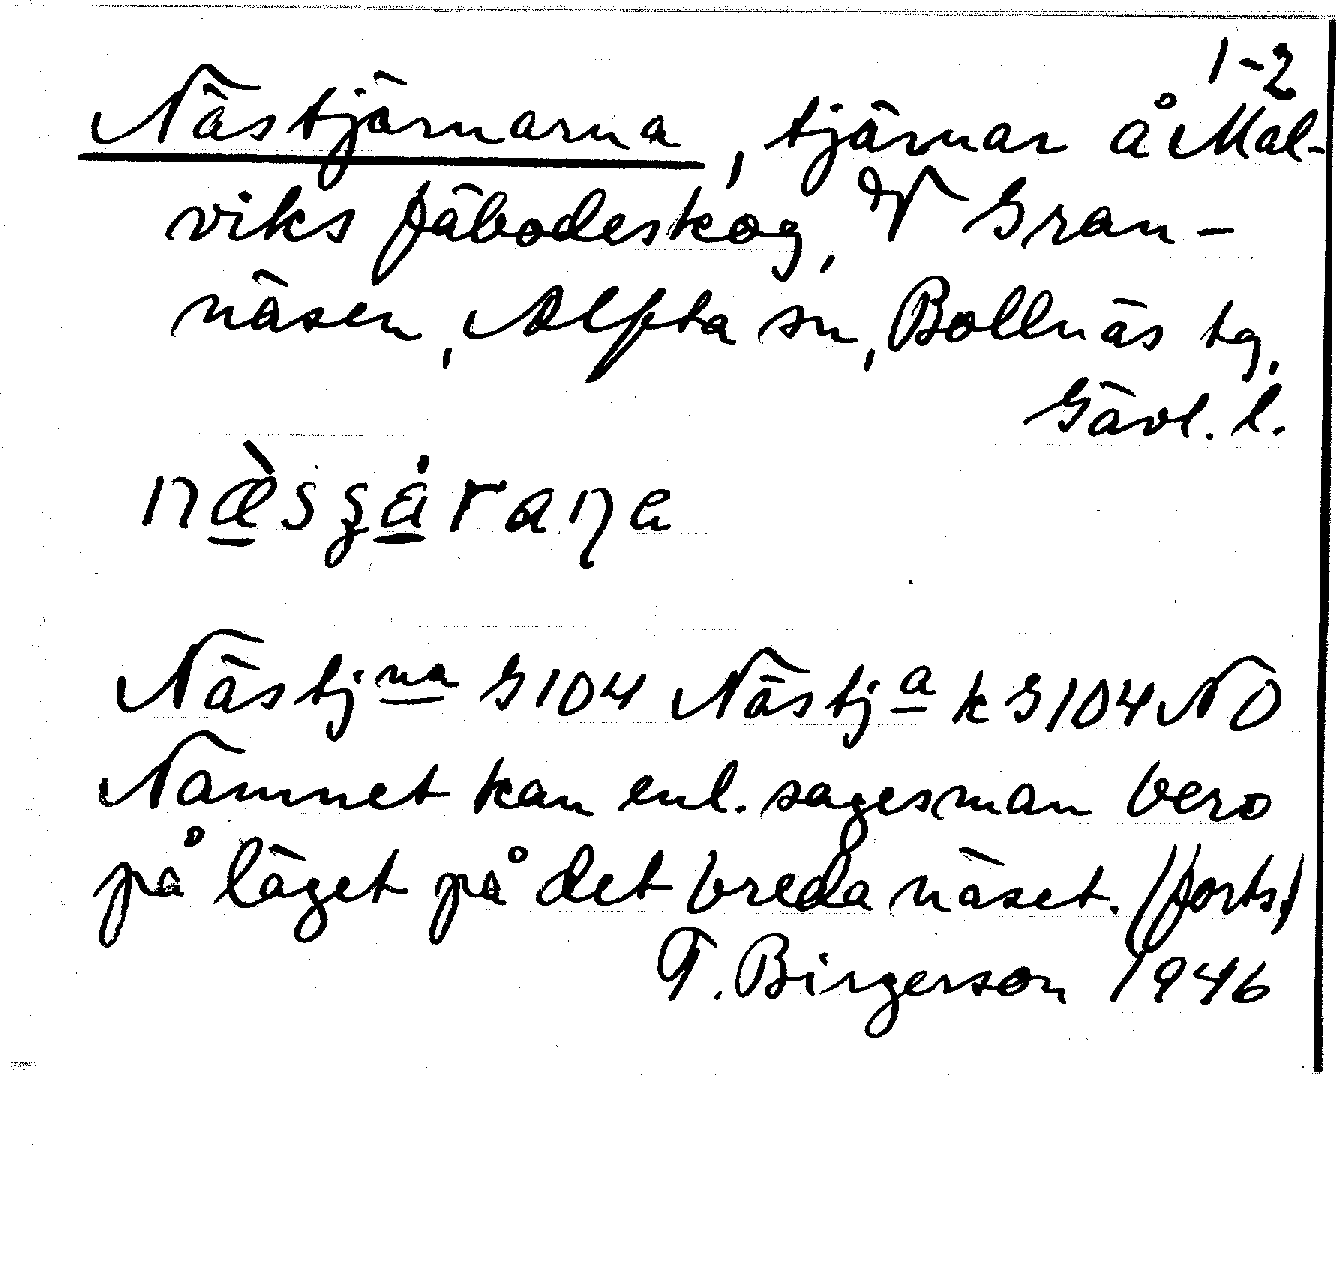 1-2
Nästjärnarna, tjärnar å Mal-
viks fäbodeskog, V Gran-
näsen, Alfta sn, Bollnäs tg,
Gävl. l.
Nästjna G104 Nästja k G104 NO
Namnet kan enl. sagesman bero
på läget på det breda näset. (forts)
T. Birgerson 1946